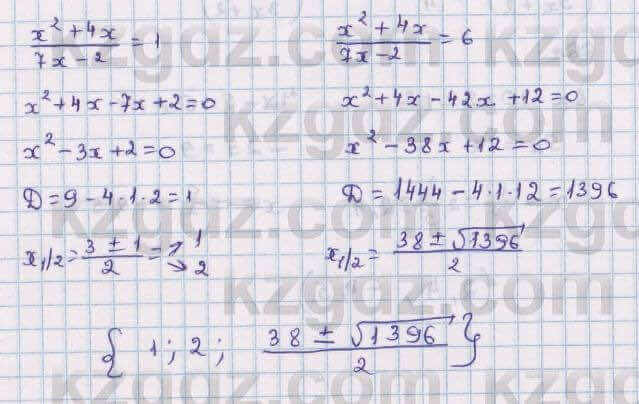 (x² + 4x)/(7x − 2) = 1
x² + 4x − 7x + 2 = 0
x² − 3x + 2 = 0
Д = 9 − 4·1·2 = 1
x₁/₂ = (3 ± 1)/2 = 1 2
(x² + 4x)/(7x − 2) = 6
x² + 4x − 42x + 12 = 0
x² − 38x + 12 = 0
Д = 1444 − 4·1·12 = 1396
x₁/₂ = (38 ± √1396)/2
{ 1; 2; (38 ± √1396)/2 }
kzgdz.com